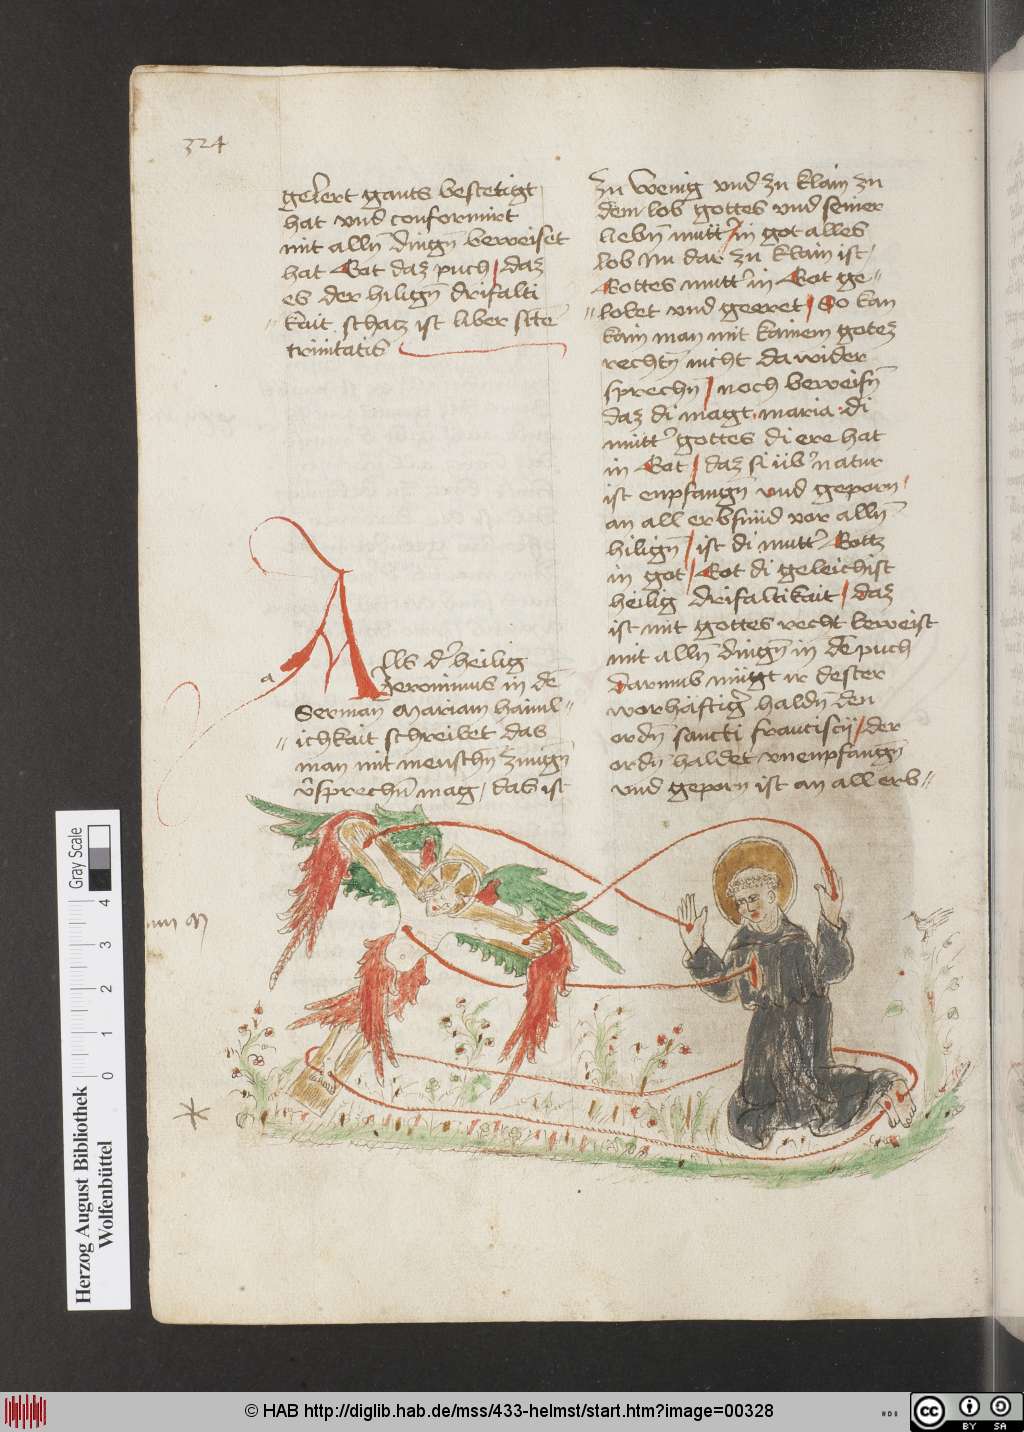 324
gelert gants bestetigt
hat und conformirt
mit alln dingn beweiset
hat Got daz puch / daz
es der hilign drifalti
kait schatz ist liber scte
trinitatis
a
Alls d' heilig
Jeronimus in de
Serman Mariam haiml
ichkait schreibet das
man mit menschn zungn
v'sprechn mag / das ist
zu wenig und zu klain zu
dem lob gottes und seiner
liebn mutt' / in got alles
lob im dar zu klain ist /
Gottes mutt' in Got ge
lobet und geeret / So kan
kain man mit kainem gotez
rechtn nicht da wider
sprechn / noch beweisn
daz di magt maria di
mutt' gottes di ere hat
in Got / daz si üb' natur
ist enpfangn und geporn
an all erbsund vor alln
hilign / ist di mutt' Gottz
in got / Got di geleichist
heilig drifaltikait / daz
ist mit gottes recht beweist
mit alln dingn in de puch
darumb mügt ir dester
worhaftig' haldn den
ordn sancti francisci / der
ordn haldet unenpfangn
und geporn ist an all erb
Gray Scale
0 1 2 3 4
Herzog August Bibliothek
Wolfenbüttel
© HAB http://diglib.hab.de/mss/433-helmst/start.htm?image=00328
cc BY SA